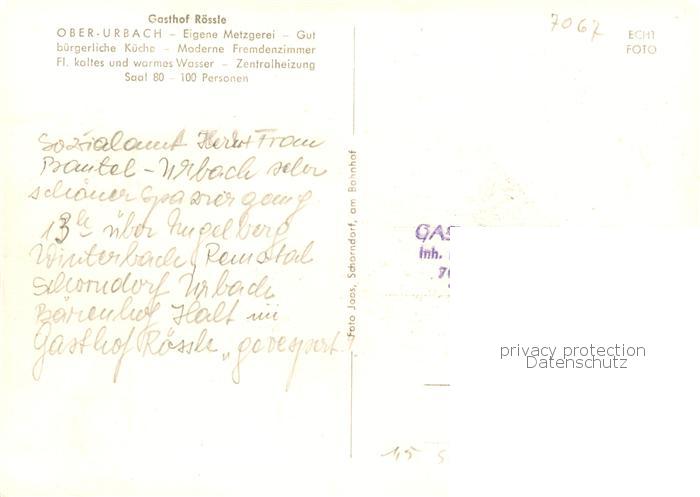 Gasthof Rössle
OBER-URBACH – Eigene Metzgerei – Gut
bürgerliche Küche – Moderne Fremdenzimmer
Fl. kaltes und warmes Wasser – Zentralheizung
Saal 80 – 100 Personen
7067
ECHT
FOTO
Sozialamt Herr + Frau
Bantel - Urbach sehr
schöner Spaziergang
13 über Engelberg
Winterbach, Remstal
Schorndorf Urbach
Bärenhof Halt im
Gasthof Rössle „gevespert"
Foto Joos, Schorndorf, am Bahnhof
GAS
Inh.
privacy protection
Datenschutz